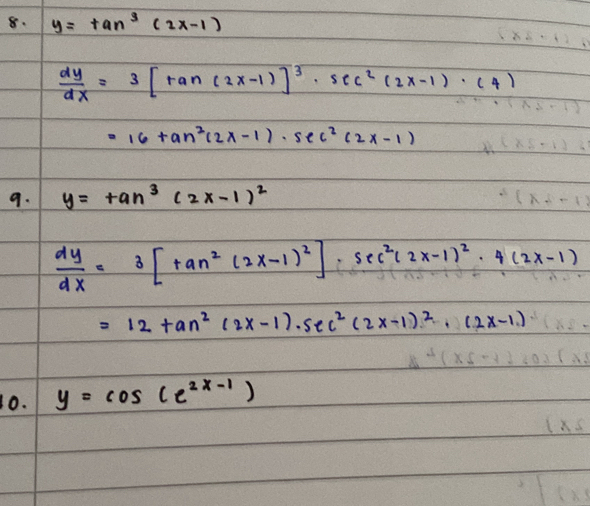 8. y = tan³ (2x-1)
dy/dx = 3 [tan (2x-1)]³ · sec² (2x-1) · (4)
= 16 tan² (2x-1) · sec² (2x-1)
9. y = tan³ (2x-1)²
dy/dx = 3 [tan² (2x-1)²] · sec² (2x-1)² · 4 (2x-1)
= 12 tan² (2x-1) · sec² (2x-1)² · (2x-1)
10. y = cos (e²ˣ⁻¹)